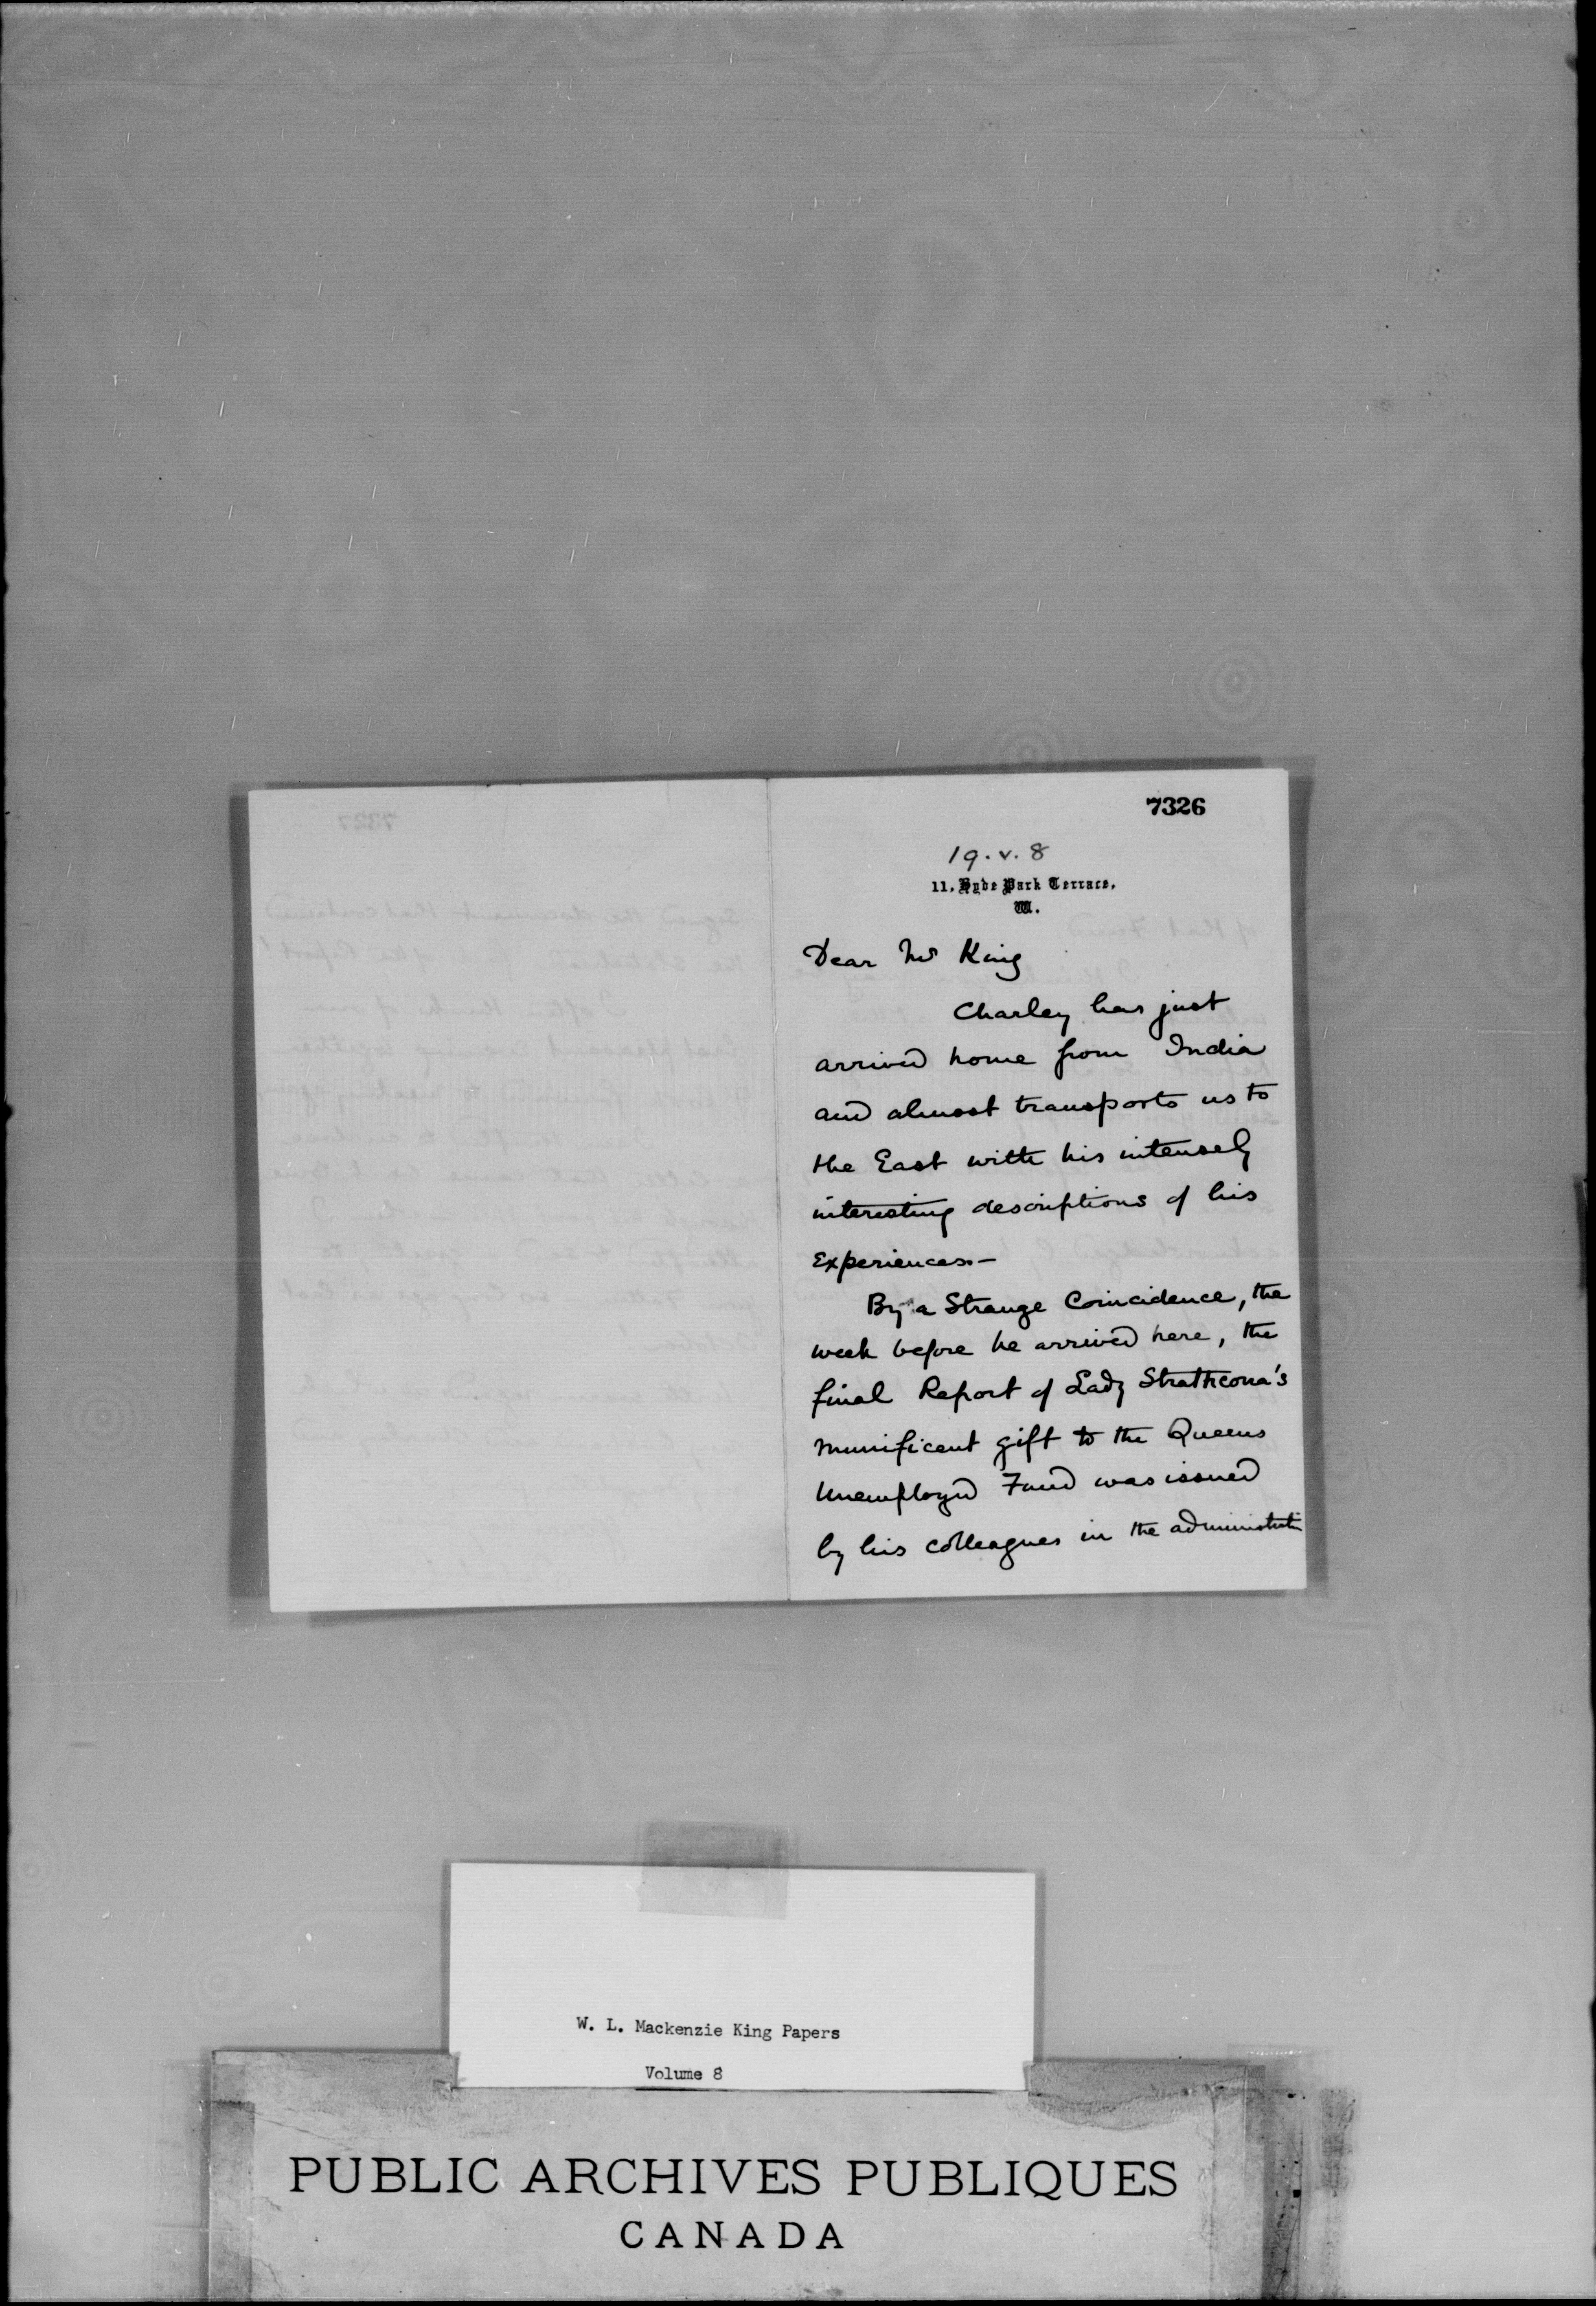 7326
19.v.8
11, Hyde Park Terrace,
W.
Dear Mr King
Charley has just
arrived home from India
and almost transports us to
the East with his intensely
interesting descriptions of his
experiences—
By a Strange Coincidence, the
week before he arrived here, the
final Report of Lady Strathcona's
munificent gift to the Queens
Unemployed Fund was issued
by his colleagues in the
W. L. Mackenzie King Papers
Volume 8
PUBLIC ARCHIVES PUBLIQUES
CANADA